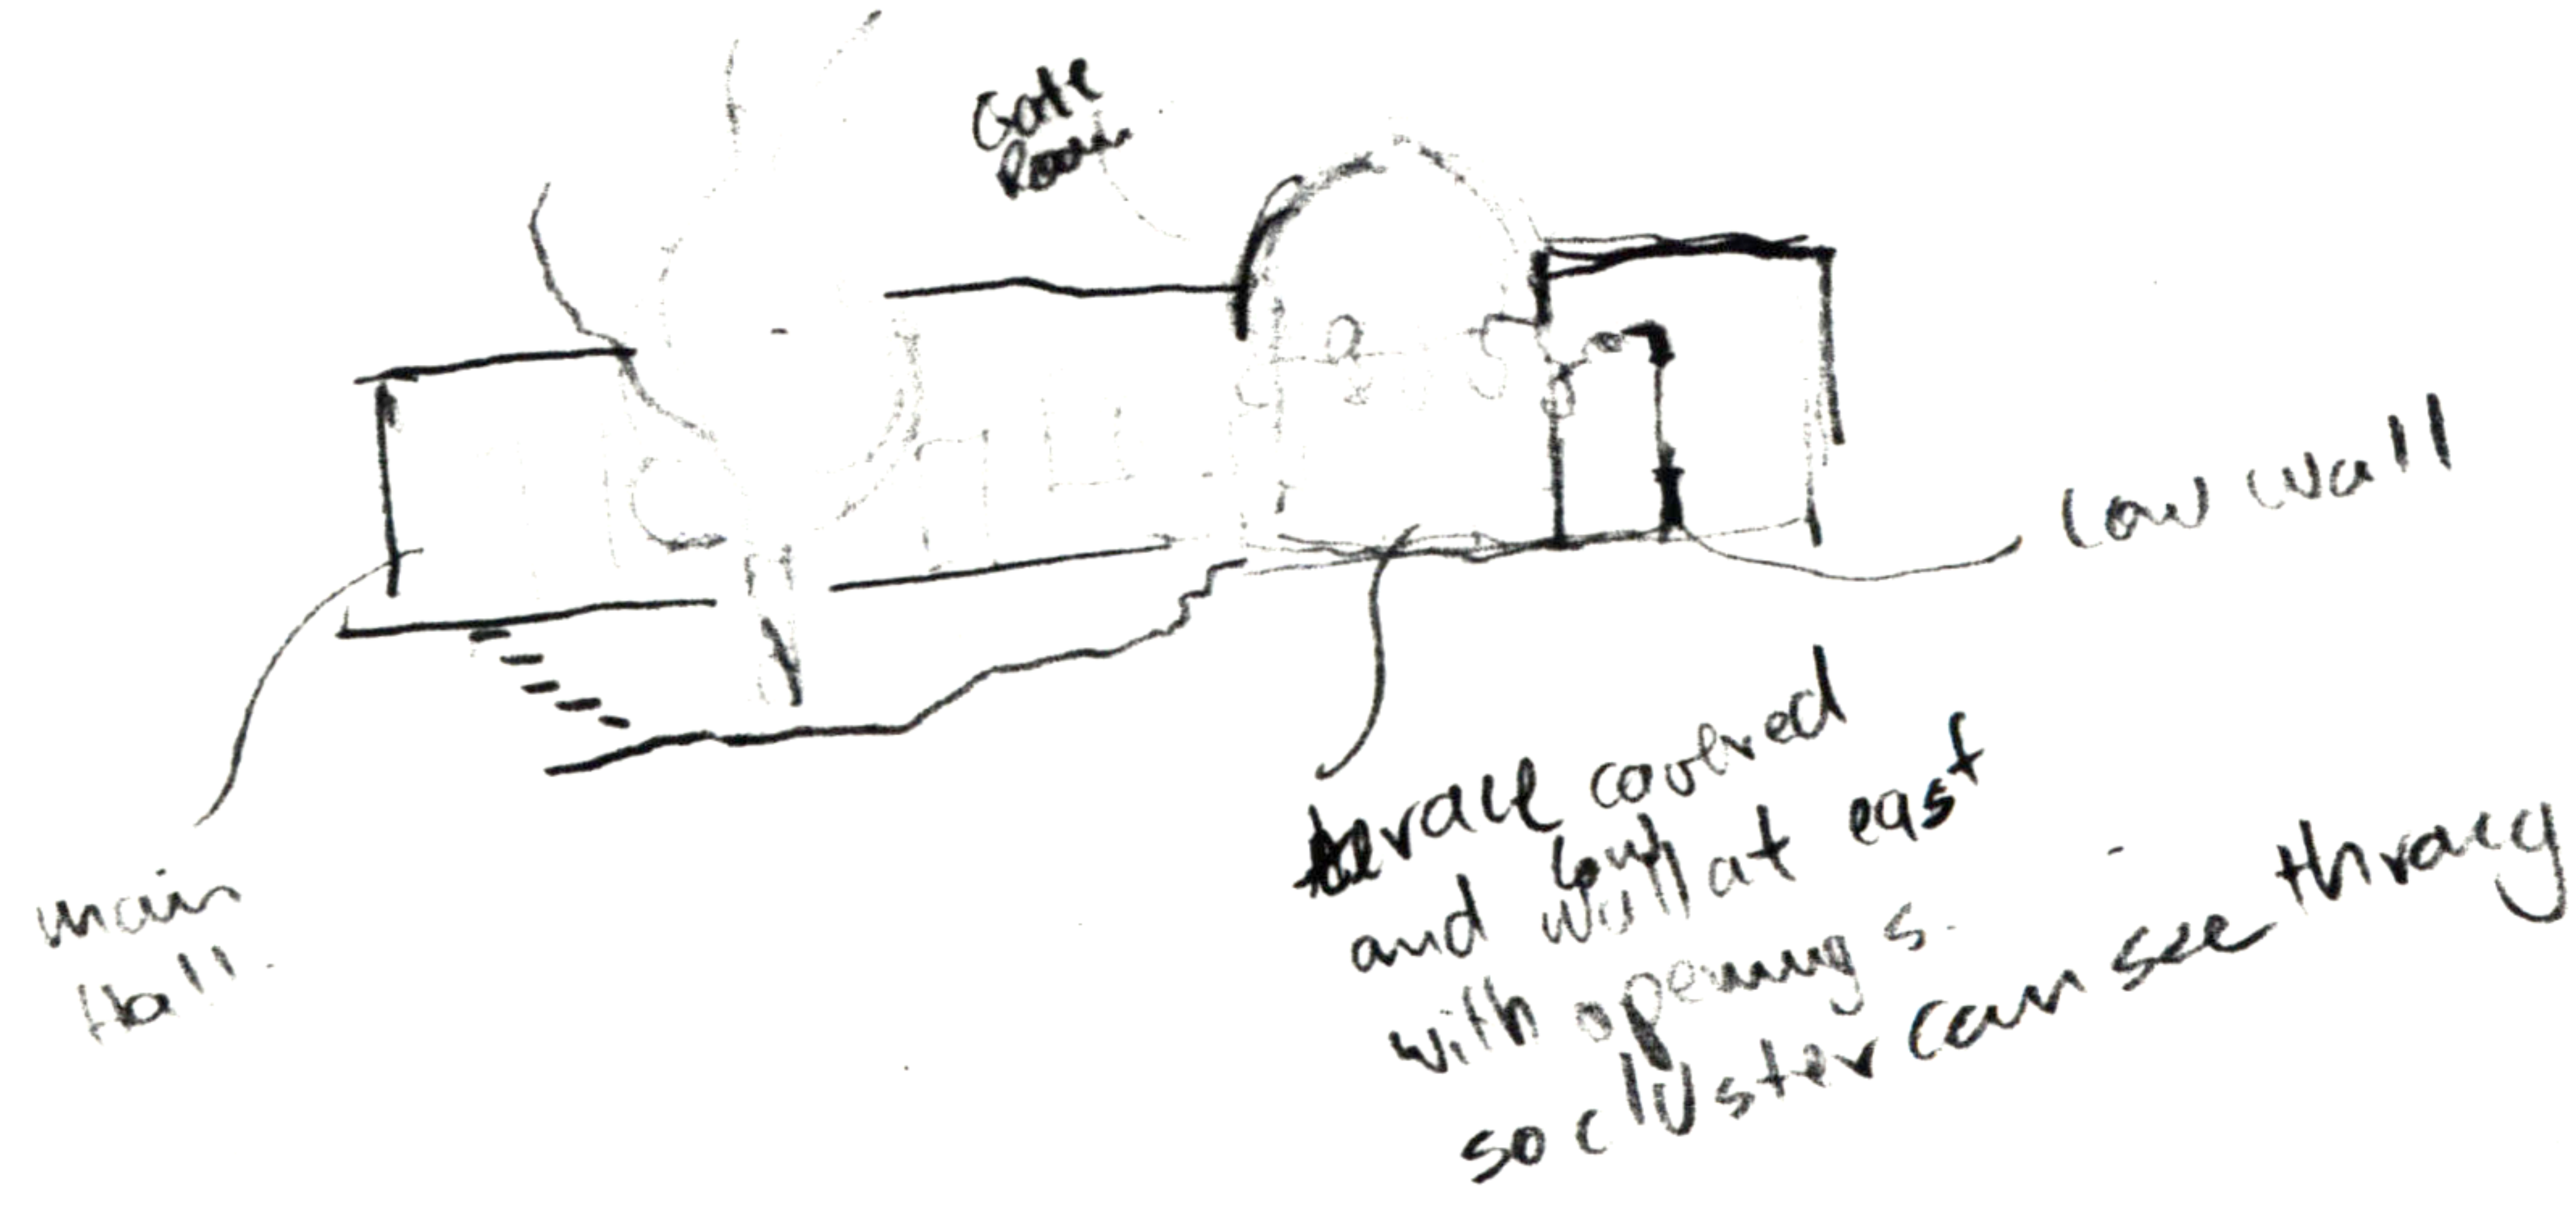 Gate
Room
Low wall
terace covered
and low wall at east
with openings.
so cluster can see throug
main
Hall.